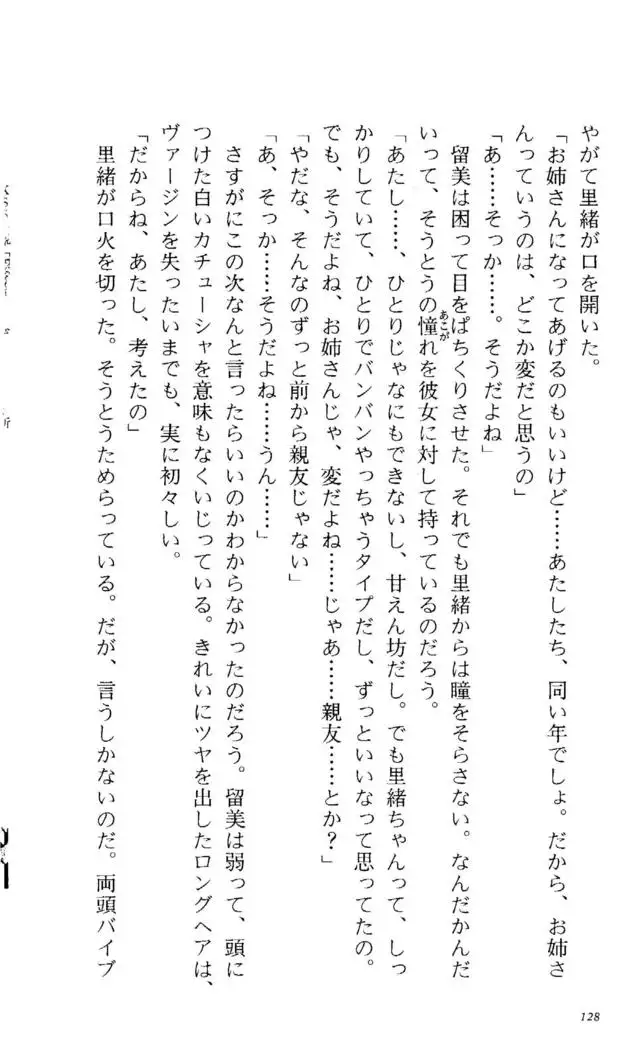 やがて里緒が口を開いた。
「お姉さんになってあげるのもいいけど……あたしたち、同い年でしょ。だから、お姉さ
んっていうのは、どこか変だと思うの」
「あ……そっか……。そうだよね」
留美は困って目をぱちくりさせた。それでも里緒からは瞳をそらさない。なんだかんだ
いって、そうとうの憧れを彼女に対して持っているのだろう。
あこが
「あたし……、ひとりじゃなにもできないし、甘えん坊だし。でも里緒ちゃんって、しっ
かりしていて、ひとりでバンバンやっちゃうタイプだし、ずっといいなって思ってたの。
でも、そうだよね、お姉さんじゃ、変だよね……じゃあ……親友……とか?」
「やだな、そんなのずっと前から親友じゃない」
「あ、そっか……そうだよね……うん……」
さすがにこの次なんと言ったらいいのかわからなかったのだろう。留美は弱って、頭に
つけた白いカチューシャを意味もなくいじっている。きれいにツヤを出したロングヘアは、
ヴァージンを失ったいまでも、実に初々しい。
「だからね、あたし、考えたの」
里緒が口火を切った。そうとうためらっている。だが、言うしかないのだ。両頭バイブ
128